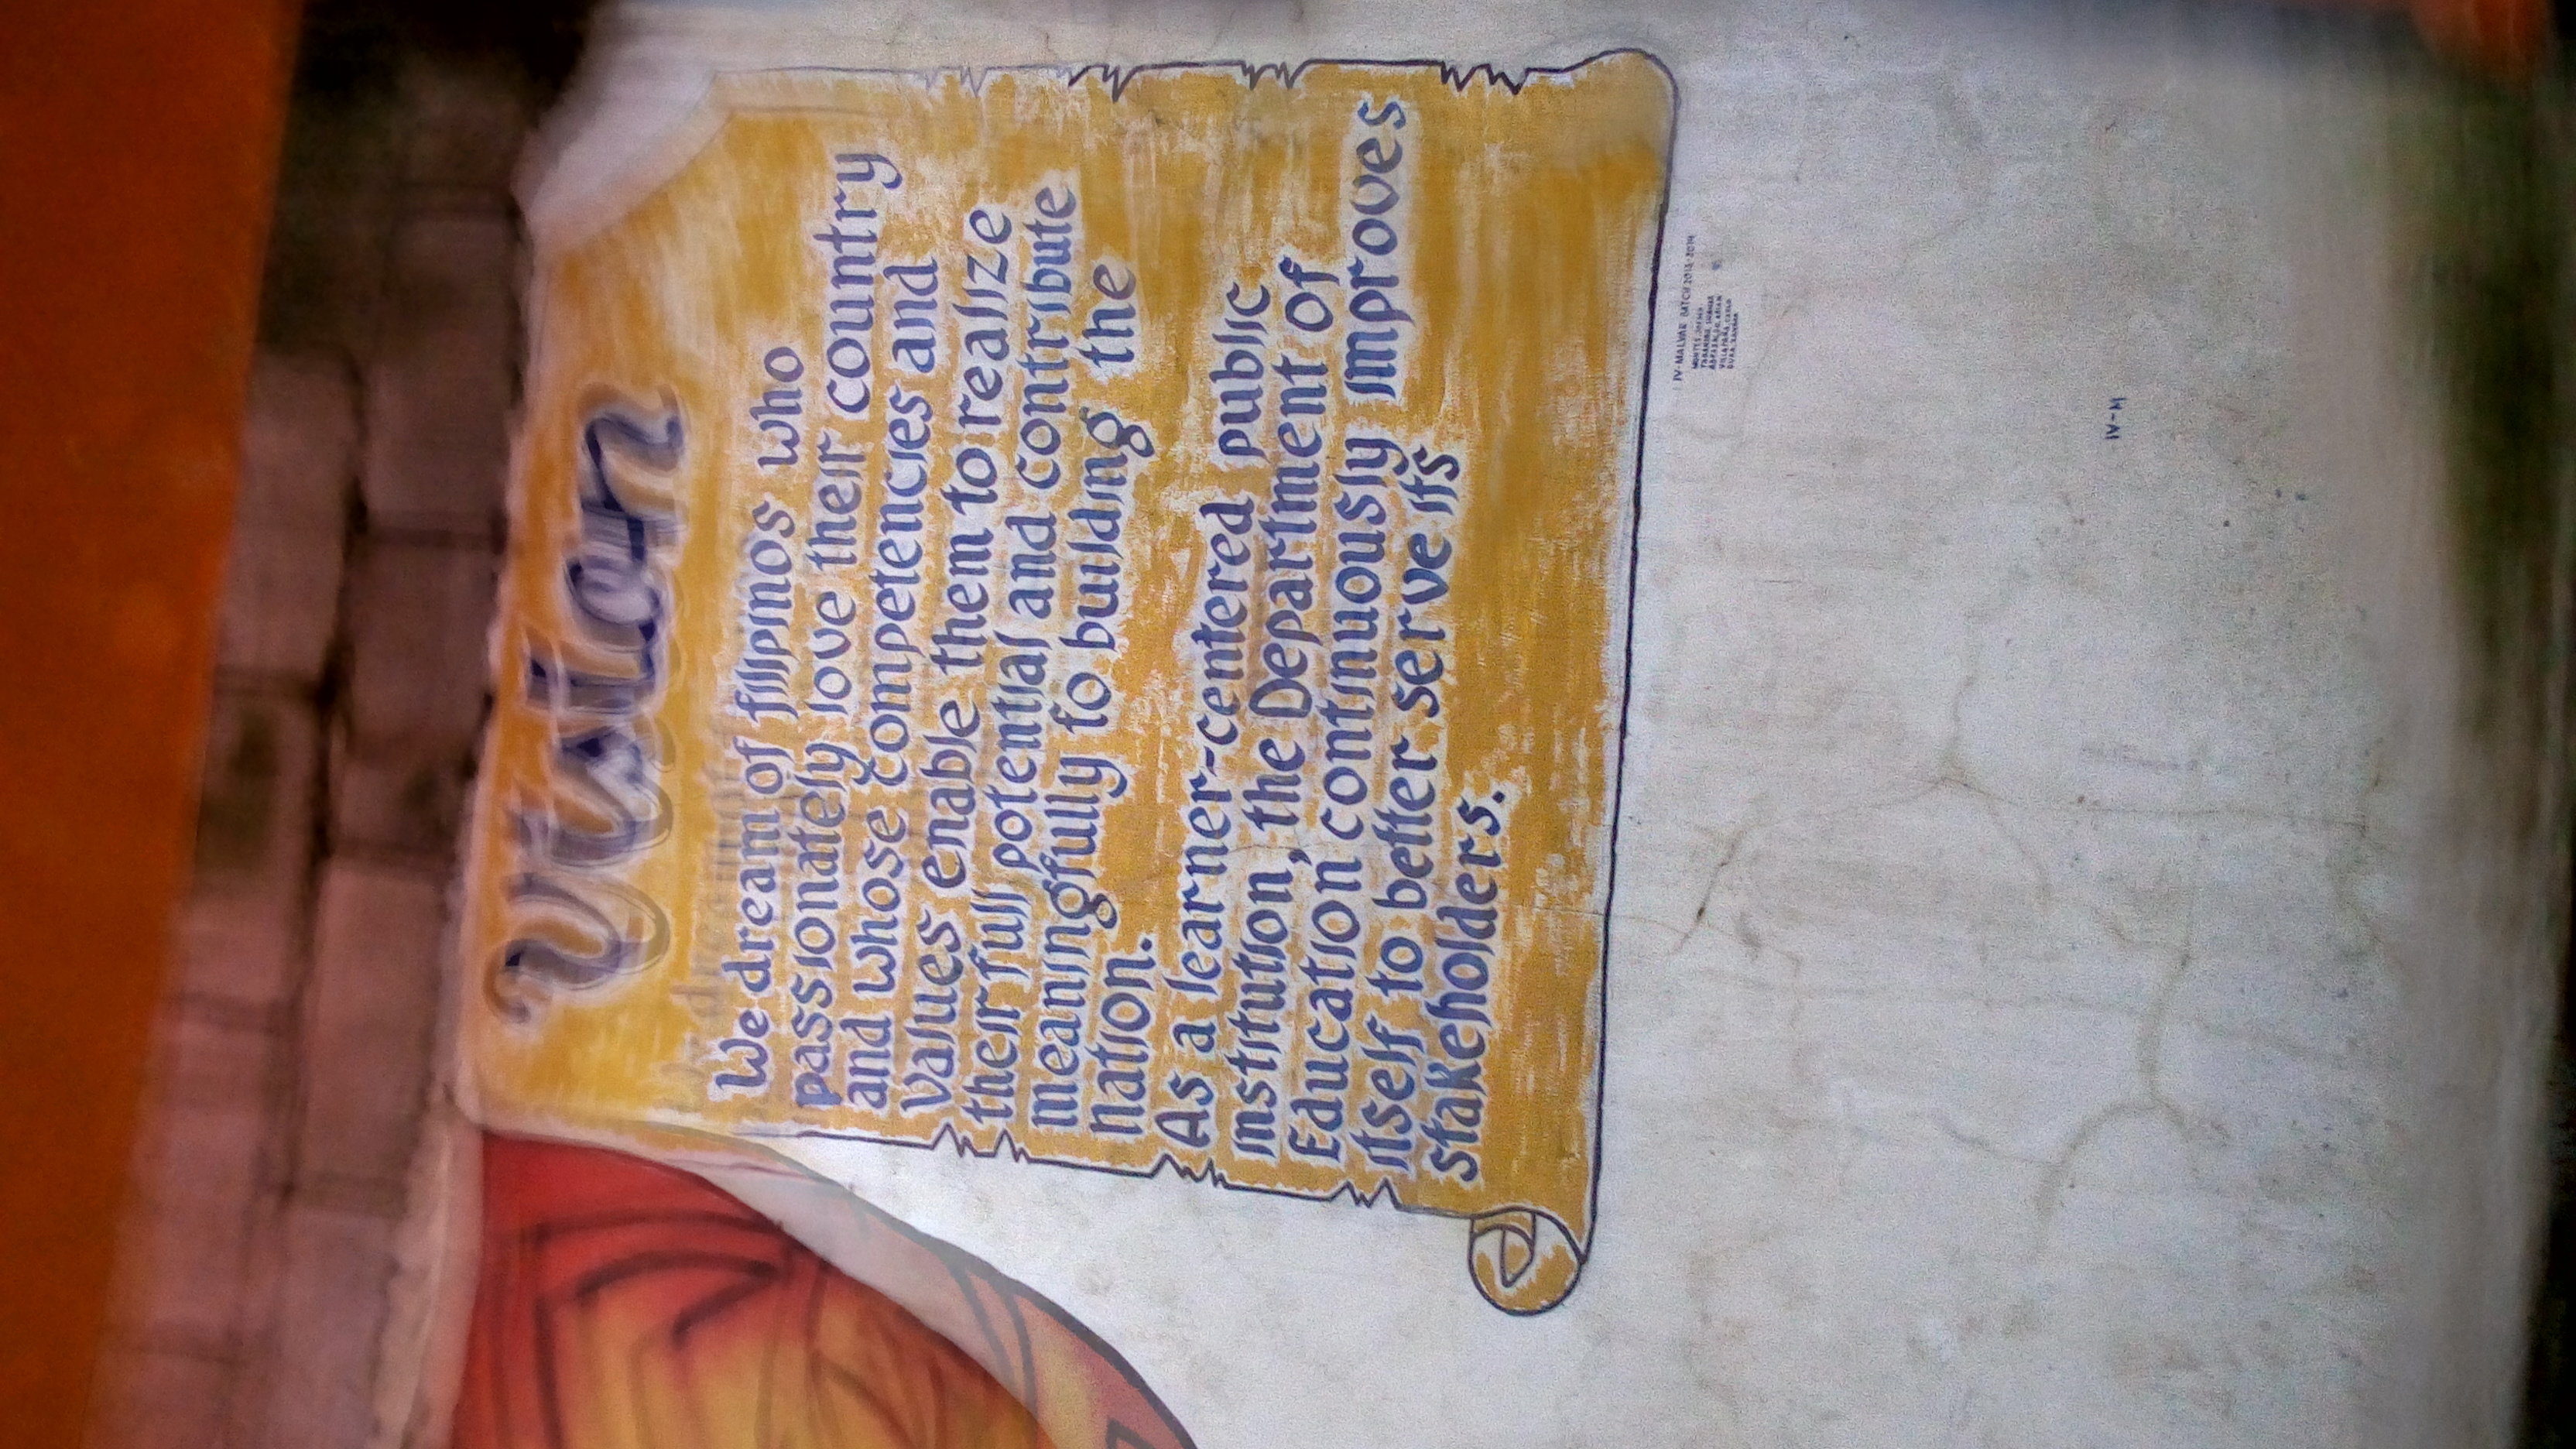 Vision
We dream of filipinos who
passionately love their country
and whose competencies and
values enable them to realize
their full potential and contribute
meaningfully to building the
nation.
As a learner-centered public
institution, the Department of
Education continuously improves
itself to better serve its
stakeholders.
IV-MALVAR BATCH 2013-2014
IV-M